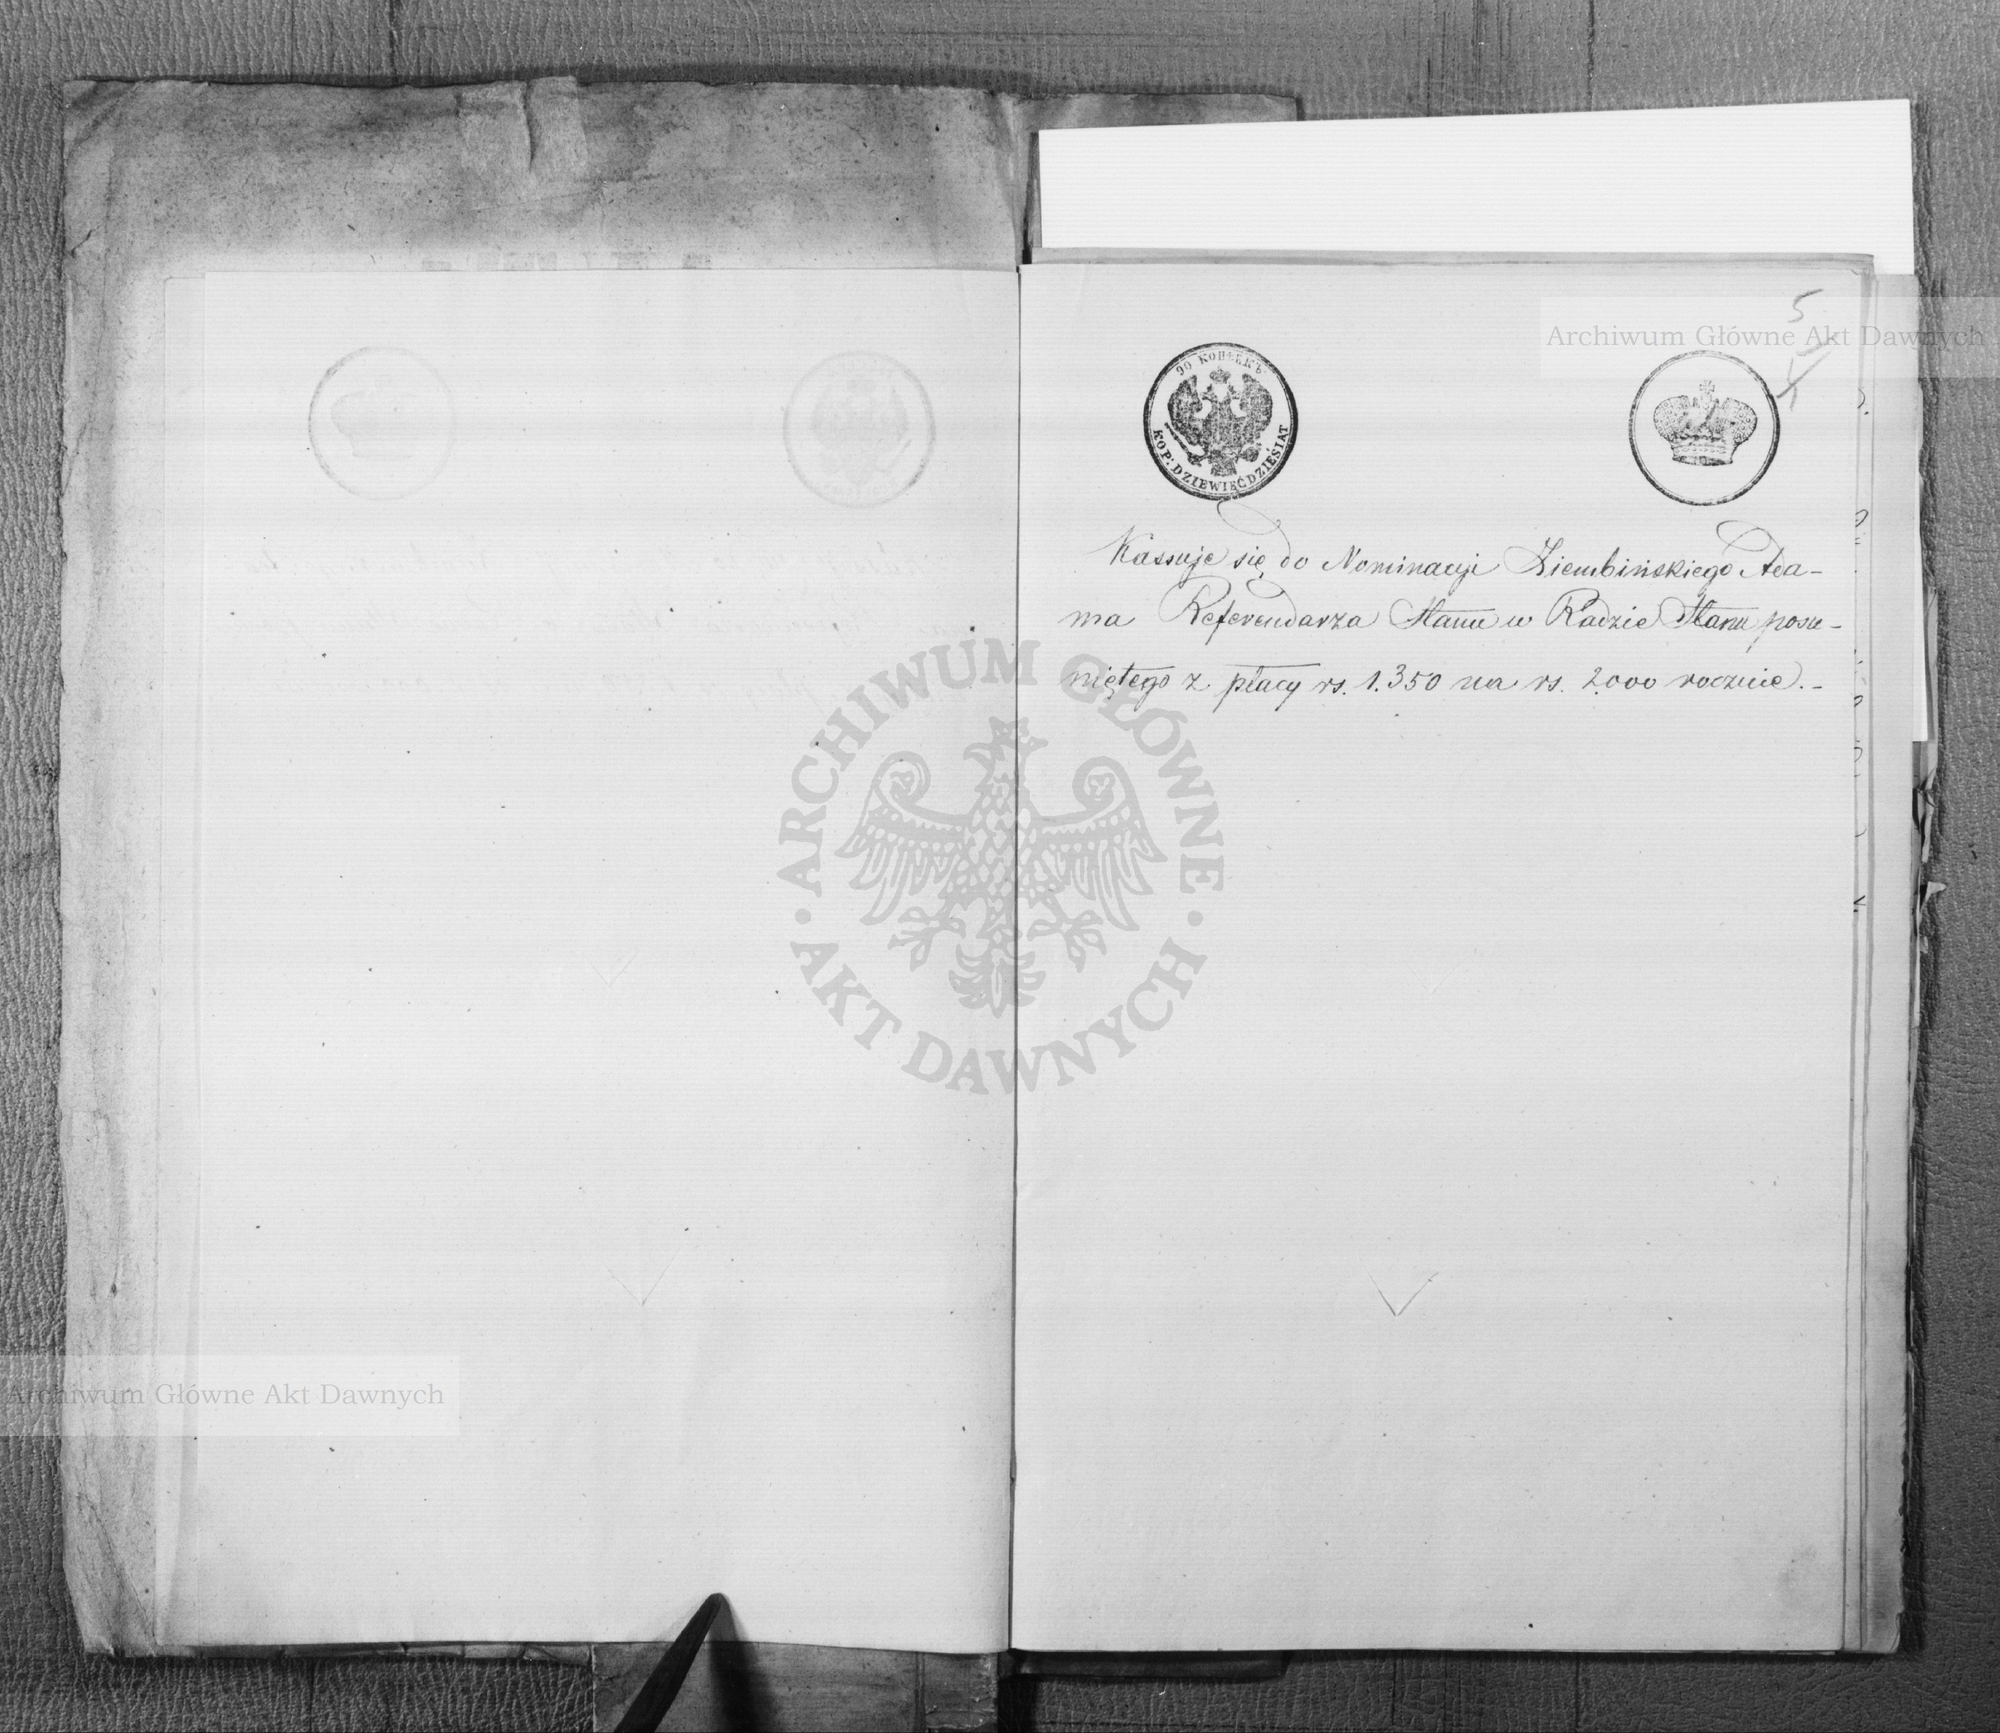 5
Archiwum Główne Akt Dawnych
90 КОПѢЕКЪ
KOP: DZIEWIĘĆDZIESIĄT
Kassuje się do Nominacyi Ziembińskiego Ada-
ma Referendarza Stanu w Radzie Stanu posu-
niętego z płacy rs. 1.350 na rs. 2.000 rocznie. -
ARCHIWUM GŁÓWNE
· AKT DAWNYCH ·
Archiwum Główne Akt Dawnych